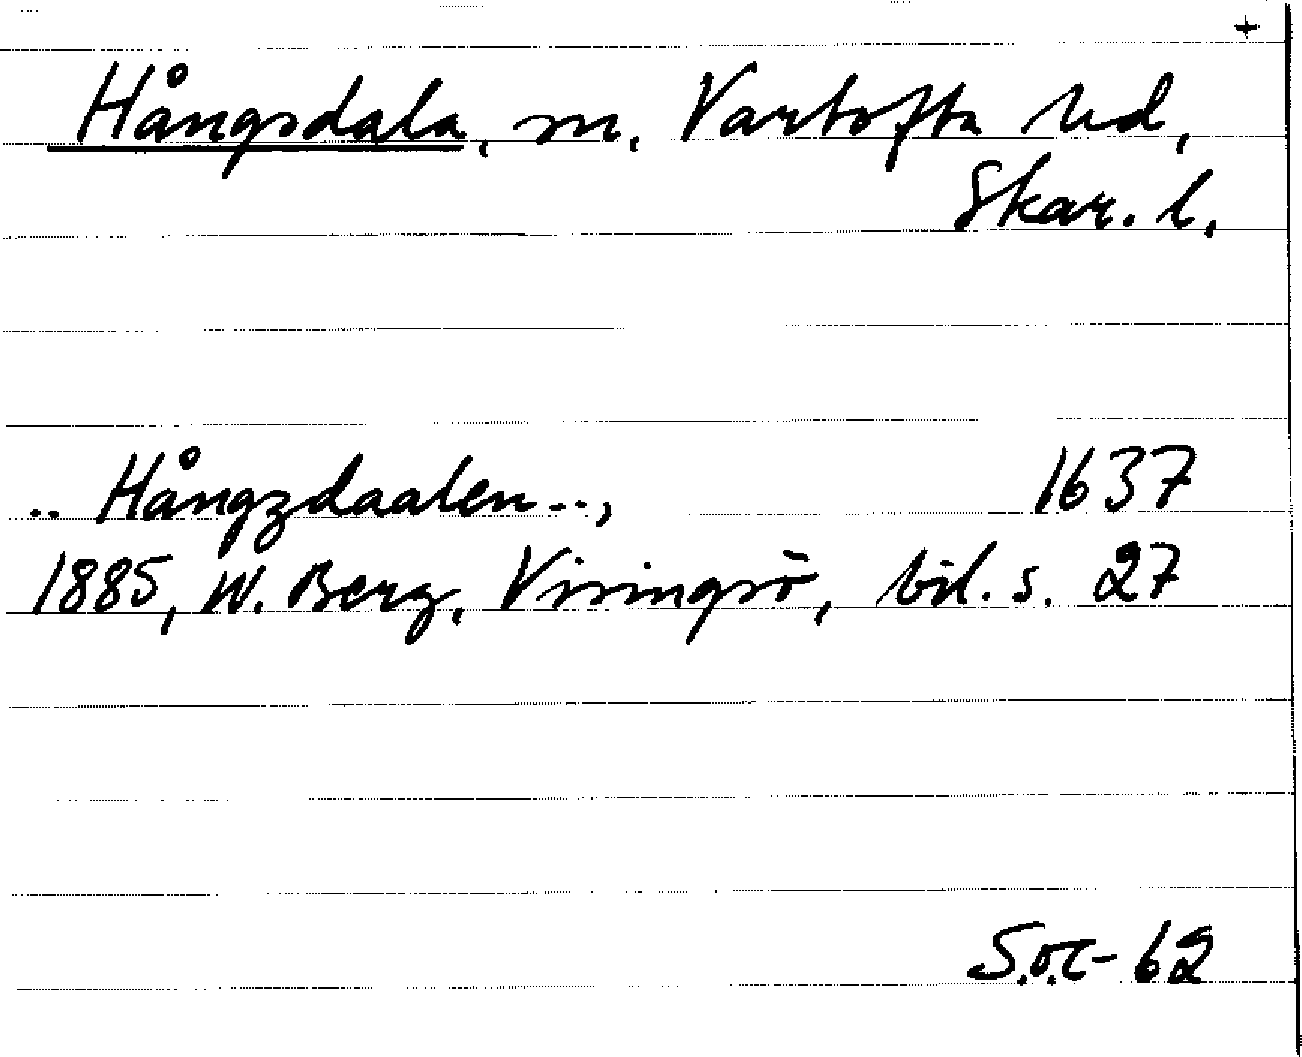 +
Hångsdala, sn. Vartofta hd,
Skar. l.
.. Hångzdaalen .., 1637
1885, W. Berg, Visingsö, bil. s. 27
S.o.c- 62